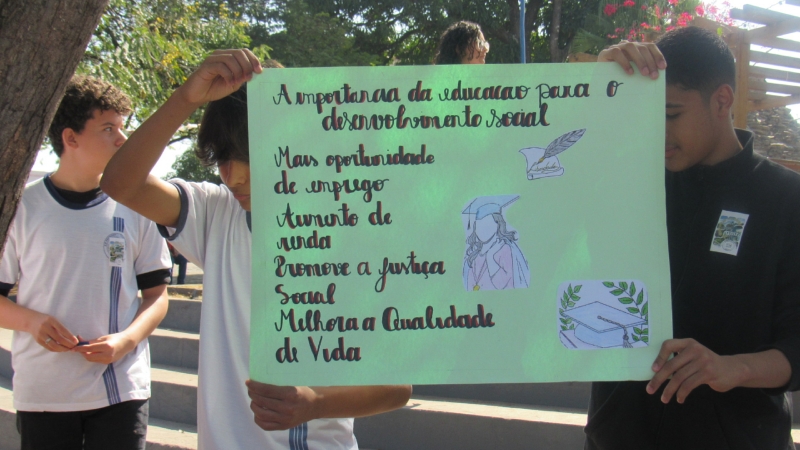 A importancia da educacao para o
desenvolvimento social
Mais oportunidade
de emprego
Aumento de
renda
Promove a justiça
Social
Melhora a Qualidade
de Vida